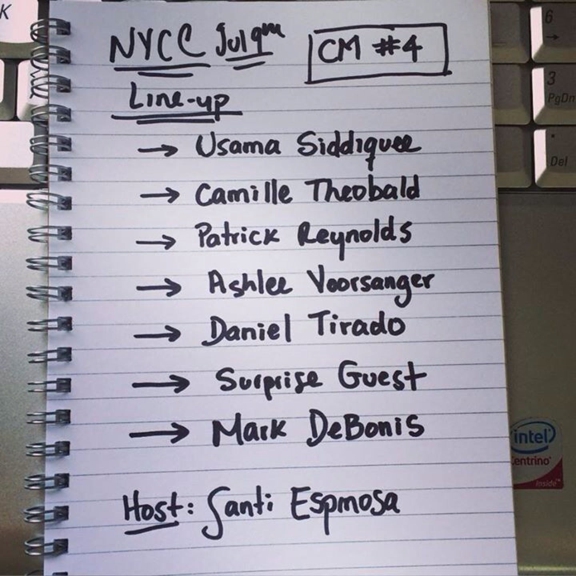 NYCC Jul 9th
CM #4
Line-up
→ Usama Siddiquee
→ Camille Theobald
→ Patrick Reynolds
→ Ashlee Voorsanger
→ Daniel Tirado
→ Surprise Guest
→ Mark DeBonis
Host: Santi Espinosa
K
6
→
3
PgDn
.
Del
intel
Centrino
inside